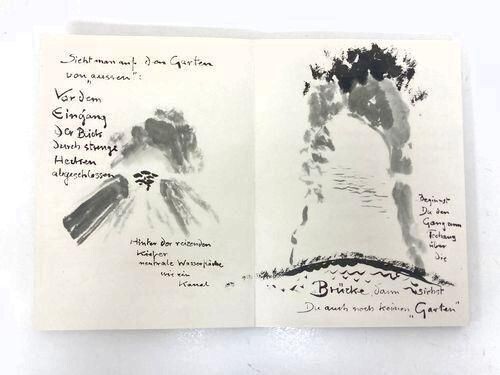 Sieht man auf den Garten
von „aussen":
Vor dem
Eingang
Der Blick
Durch strenge
Hecken
abgeschlossen
Hinter der reizenden
Kiefer
neutrale Wasserfläche
wie ein
Kanal
Beginnst
Du den
Gang zum
über
die
Brücke dann siehst
Du auch noch keinen „Garten"